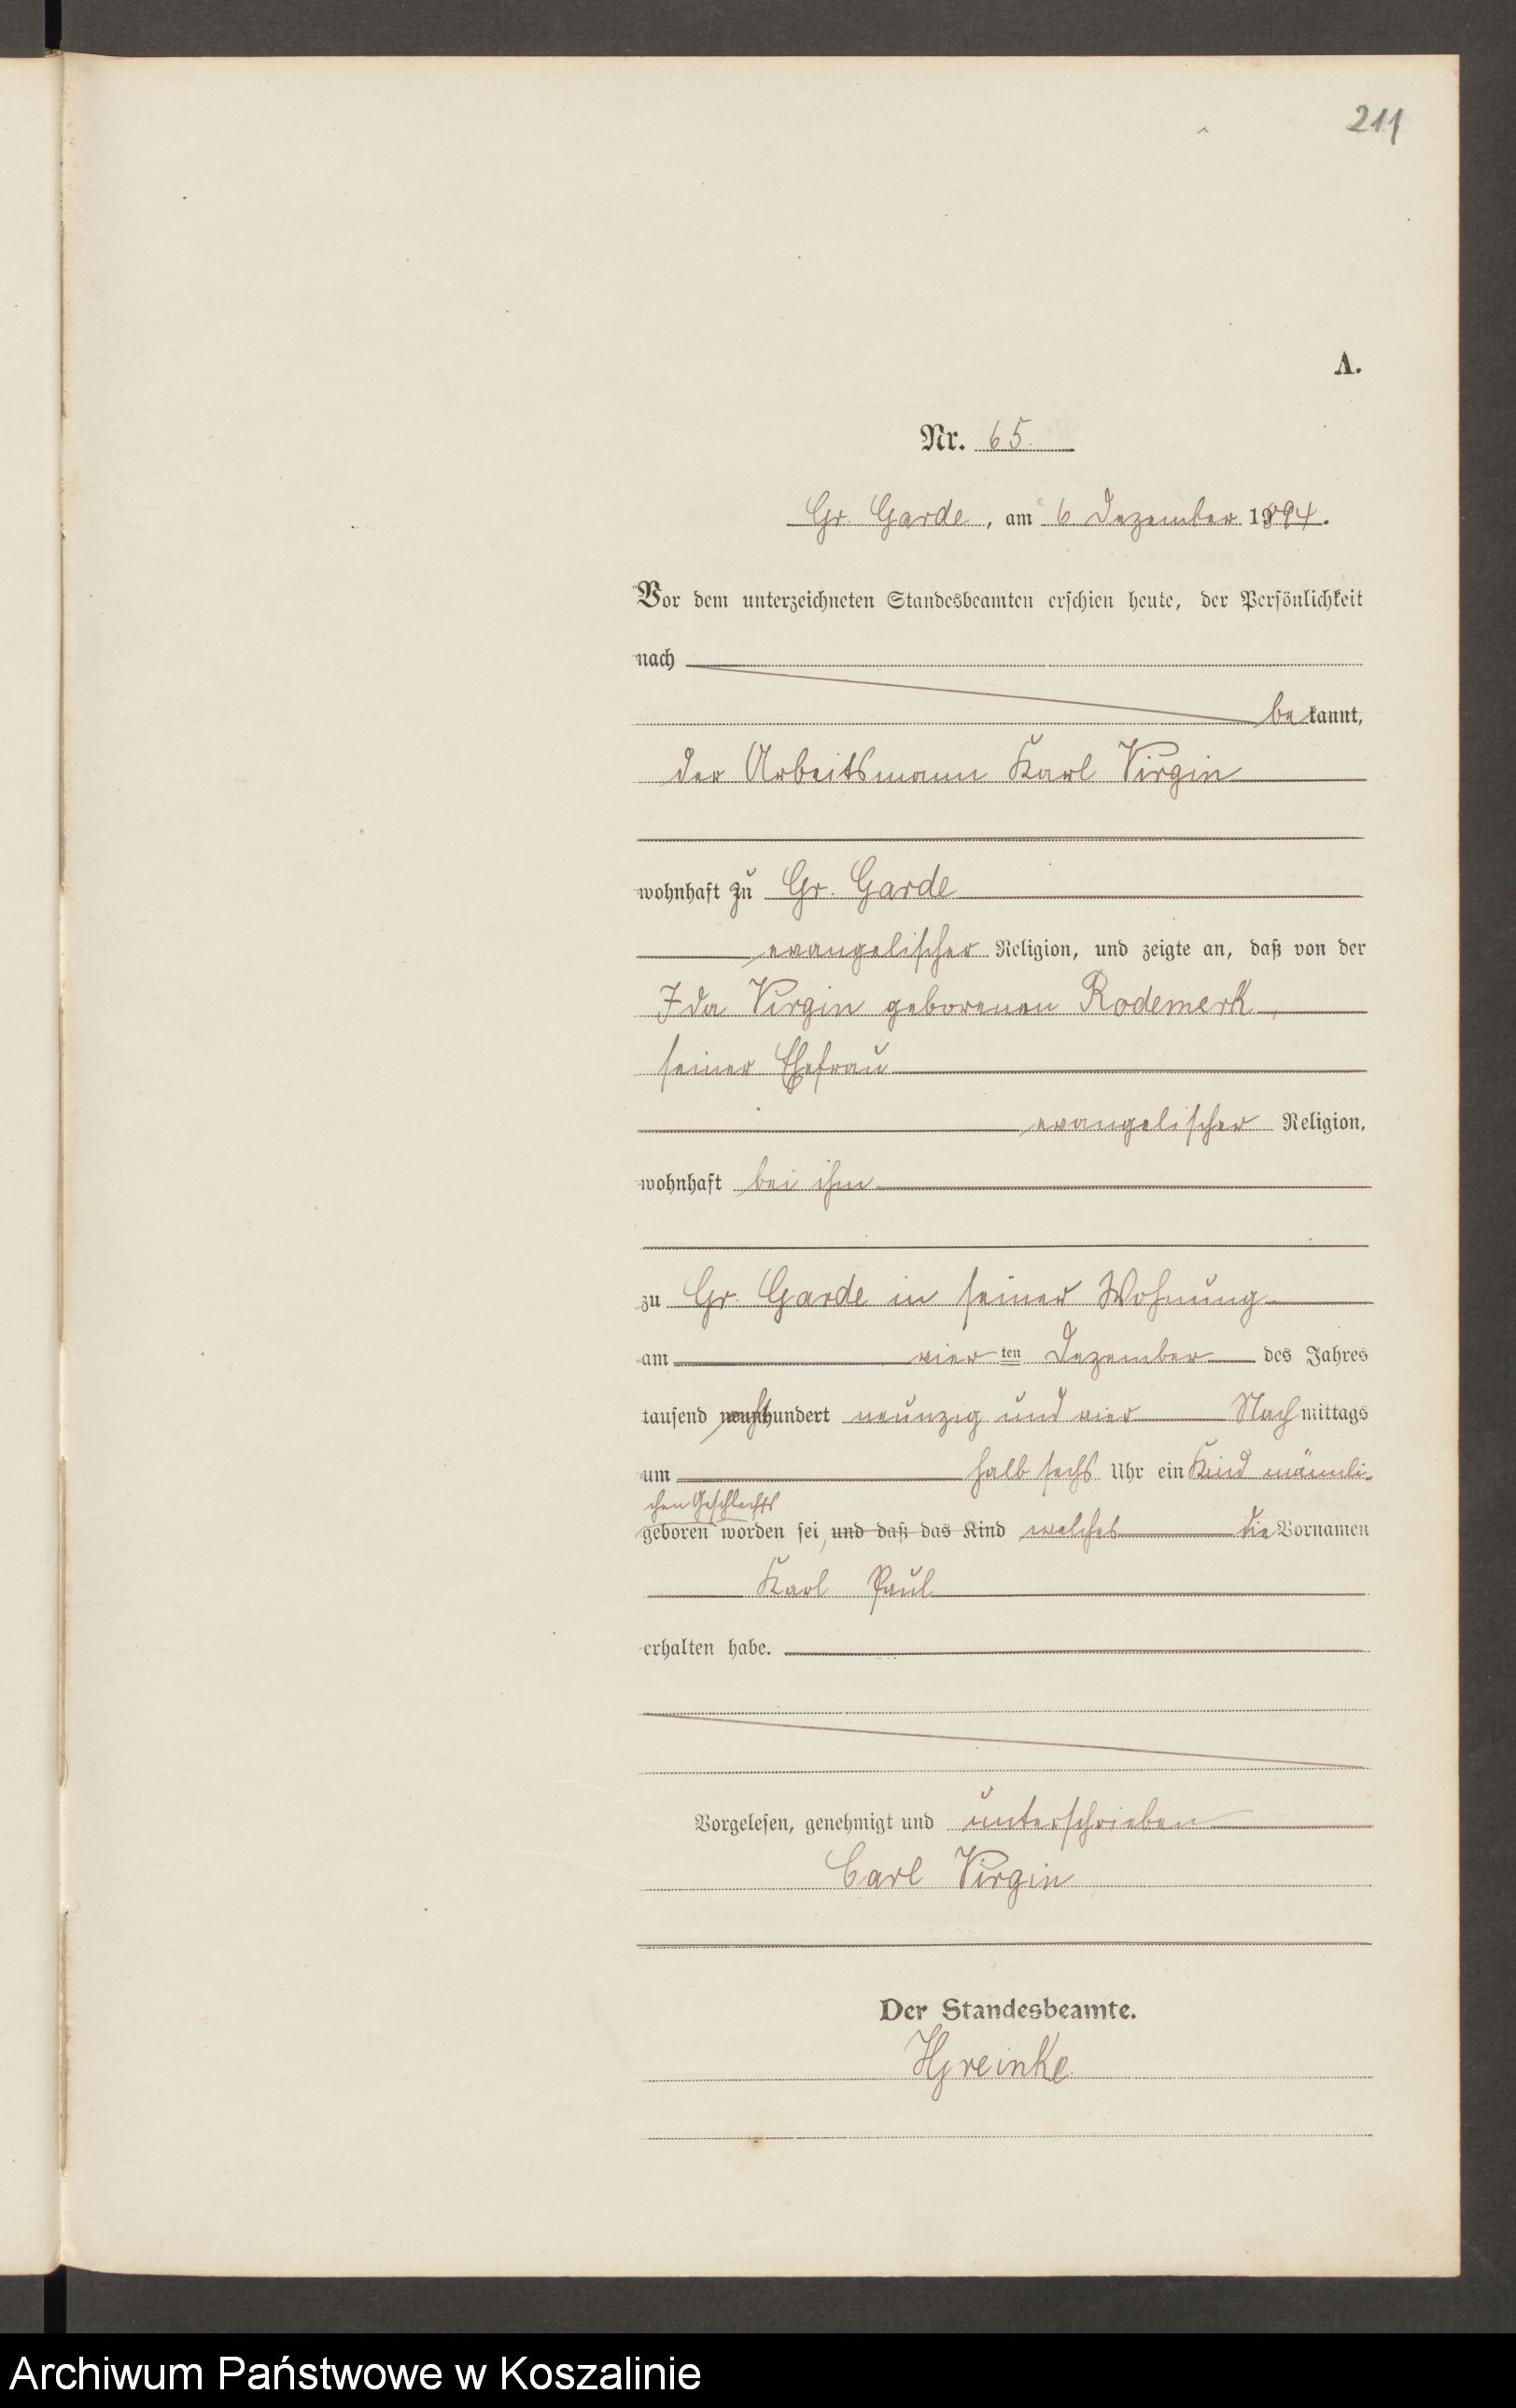 211
A.
Nr. 65.
Gr. Garde, am 6 Dezember 1894.
Vor dem unterzeichneten Standesbeamten erschien heute, der Persönlichkeit
nach
bekannt,
der Arbeitsmann Karl Virgin
wohnhaft zu Gr. Garde
evangelischer Religion, und zeigte an, daß von der
Ida Virgin geborenen Rodemerk,
seiner Ehefrau
evangelischer Religion,
wohnhaft bei ihm
zu Gr. Garde in seiner Wohnung
am vierten Dezember des Jahres
tausend hundert neunzig und vier Nachmittags
um halb sechs Uhr ein Kind männli-
chen Geschlechts
geboren worden sei, und daß das Kind welches die Vornamen
Karl Paul
erhalten habe.
Vorgelesen, genehmigt und unterschrieben
Carl Virgin
Der Standesbeamte.
Archiwum Państwowe w Koszalinie